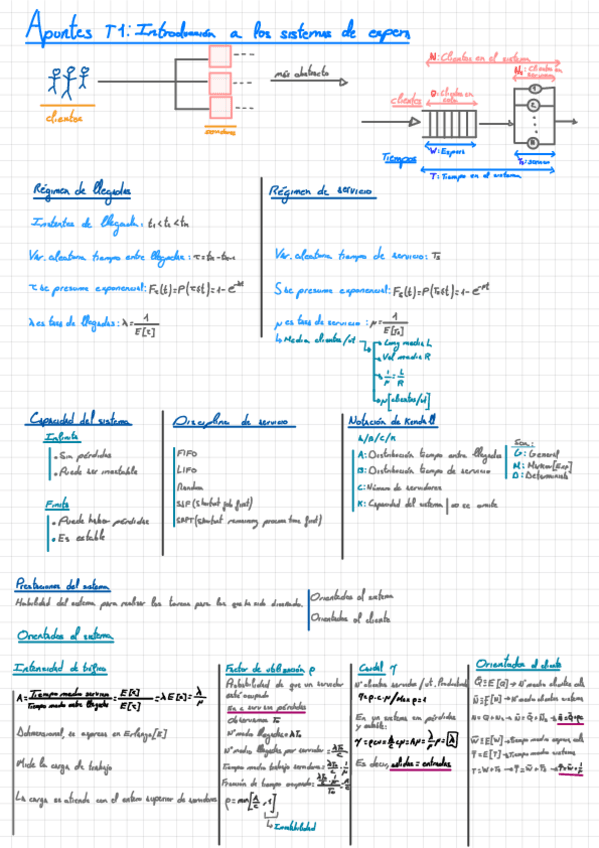 Apuntes T1: Introducción a los sistemas de espera
clientes
servidores
más abstracto
N: Clientes en el sistema
Ns: Clientes en servicio
Q: Clientes en cola
clientes
W: Espera
Ts: Servicio
Tiempos
T: Tiempo en el sistema
Régimen de llegadas
Instantes de llegada: t1<t2<tn
Var. aleatoria tiempo entre llegadas: τ=tn-tn-1
τ se presume exponencial: Fτ(t)=P(τ≤t)=1-e^-λt
λ es tasa de llegadas: λ=1/E[τ]
Régimen de servicio
Var. aleatoria tiempo de servicio: Ts
S se presume exponencial: Fs(t)=P(Ts≤t)=1-e^-μt
μ es tasa de servicio: μ=1/E[Ts]
↳ Media clientes/ut
Long media L
Vel media R
1/μ=L/R
μ[clientes/ut]
Capacidad del sistema
Infinita
• Sin pérdidas
• Puede ser inestable
Finita
• Puede haber pérdidas
• Es estable
Disciplina de servicio
FIFO
LIFO
Random
SJF (Shortest job first)
SRPT (Shortest remaining process time first)
Notación de Kendall
A/B/C/K
A: Distribución tiempo entre llegadas
B: Distribución tiempo de servicio
C: Número de servidores
K: Capacidad del sistema | ∞ se omite
G: General
M: Markov[Exp]
D: Determinista
Prestaciones del sistema
Habilidad del sistema para realizar las tareas para las que ha sido diseñado.
Orientadas al sistema
Orientadas al cliente
Orientadas al sistema
Intensidad de tráfico
A=Tiempo medio servicio/Tiempo medio entre llegadas=E[s]/E[τ]=λE[s]=λ/μ
Adimensional, se expresa en Erlangs[E]
Mide la carga de trabajo
La carga se atiende con el entero superior de servidores
Factor de utilización ρ
Probabilidad de que un servidor esté ocupado
En c serv sin pérdidas
Observamos To
Nº medio llegadas=λTo
Nº medio llegadas por servidor=λTo/c
Tiempo medio trabajo servidor=λTo/c·1/μ
Fracción de tiempo ocupado:
ρ=min[A/c,1]
↳ Inestabilidad
Caudal γ
Nº clientes servidos/ut.
γ=ρ·c·μ/Max ρ=1
En un sistema sin pérdidas y estable:
γ=ρcμ=A/c cμ=Aμ=λ/μ μ=λ
Es decir, salidas=entradas
Orientadas al cliente
Q̄=E[Q]→Nº medio clientes cola
N̄=E[N]→Nº medio clientes sistema
N=Q+Ns→N̄=Q̄+N̄s→N̄=Q̄+ρc
W̄=E[W]→Tiempo medio espera cola
T̄=E[T]→Tiempo medio sistema
T=W+Ts→T̄=W̄+T̄s→T̄=W̄+1/μ